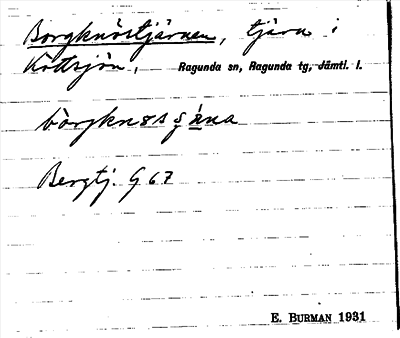 Borgknöstjärnen, tjärn i
Kottsjön, Ragunda sn, Ragunda tg, Jämtl. l.
Bergtj. G 67
E. BURMAN 1931